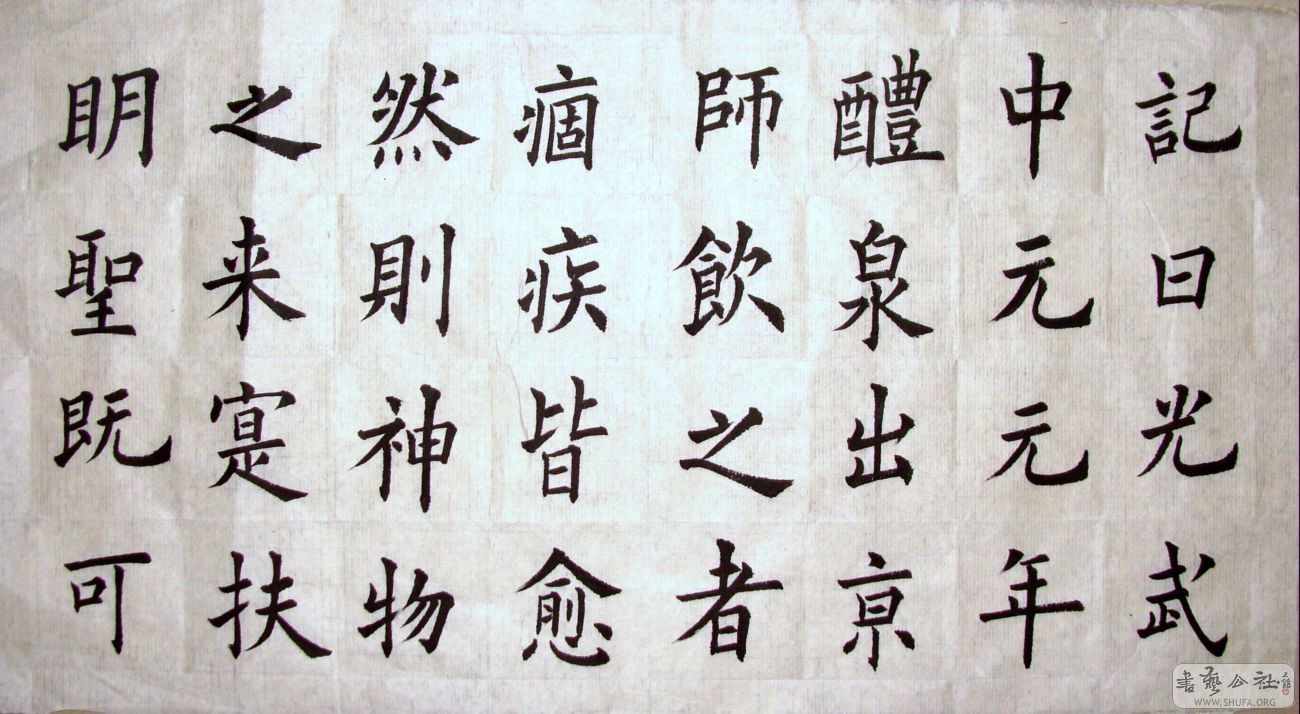 記曰光武
中元元年
醴泉出亰
師飲之者
痼疾皆愈
然則神物
之来寔扶
眀聖既可
書藝公社
WWW.SHUFA.ORG